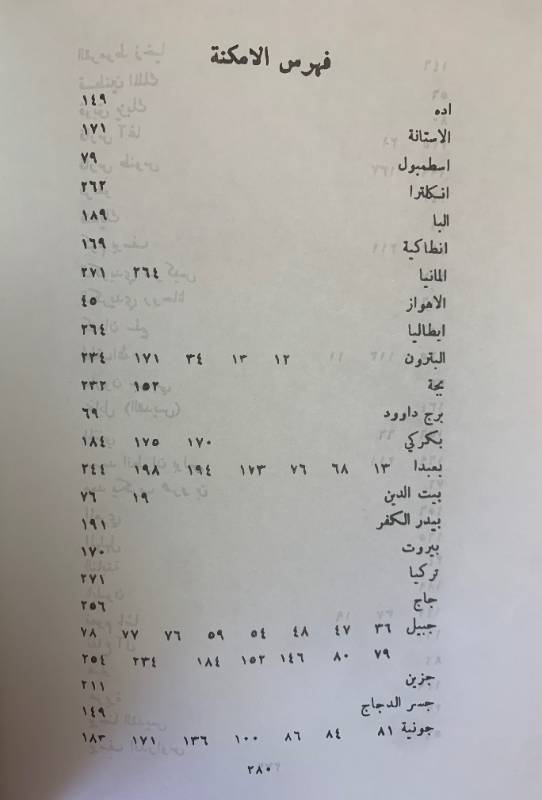 فهرس الامكنة
اده ١٤٩
الاستانة ١٧١
اسطمبول ٧٩
انكلترا ٢٦٢
البا ١٨٩
انطاكية ١٦٩
المانيا ٢٦٤ ٢٧١
الاهواز ٤٥
ايطاليا ٢٦٤
البترون ١٢ ١٣ ٣٤ ١٧١ ٢٣٤
بجة ١٥٢ ٢٣٢
برج داوود ٦٩
بكركي ١٧٠ ١٧٥ ١٨٤
بعبدا ١٣ ٦٨ ٧٦ ١٧٣ ١٩٤ ١٩٨ ٢٤٤
بيت الدين ١٩ ٧٦
بيدر الكفر ١٩١
بيروت ١٧٠
تركيا ٢٧١
جاج ٢٥٦
جبيل ٣٦ ٤٧ ٤٨ ٥٤ ٥٩ ٧٦ ٧٧ ٧٨
٧٩ ٨٠ ١٤٦ ١٥٢ ١٨٤ ٢٣٤ ٢٥٤
جزين ٢١١
جسر الدجاج ١٤٩
جونية ٨١ ٨٤ ٨٦ ١٠٠ ١٣٦ ١٧١ ١٨٣
٢٨٠